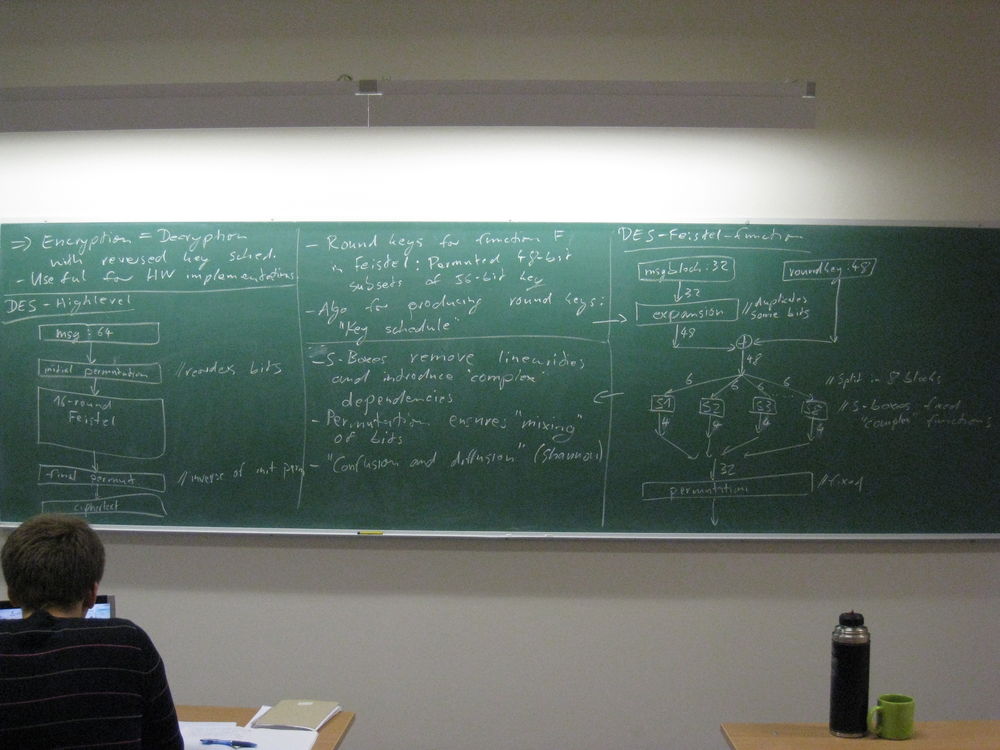 => Encryption = Decryption
with reversed key sched.
- Useful for HW implementations
DES - Highlevel
msg : 64
initial permutation
// reorders bits
16-round
Feistel
final permut
// inverse of init perm
ciphertext
- Round keys for function F
in Feistel : Permuted 48-bit
subsets of 56-bit key
- Algo for producing round keys :
"Key schedule"
- S-Boxes remove linearities
and introduce "complex"
dependencies
- Permutation ensures "mixing"
of bits
- "Confusion and diffusion" (Shannon)
DES-Feistel-function
msgblock : 32
roundkey : 48
32
expansion
// duplicates
some bits
48
+
48
6 6 6 6
// Split in 8 blocks
S1 S2 S3 S8
// S-boxes fixed
"complex" functions
4 4 4 4
32
permutation
// fixed